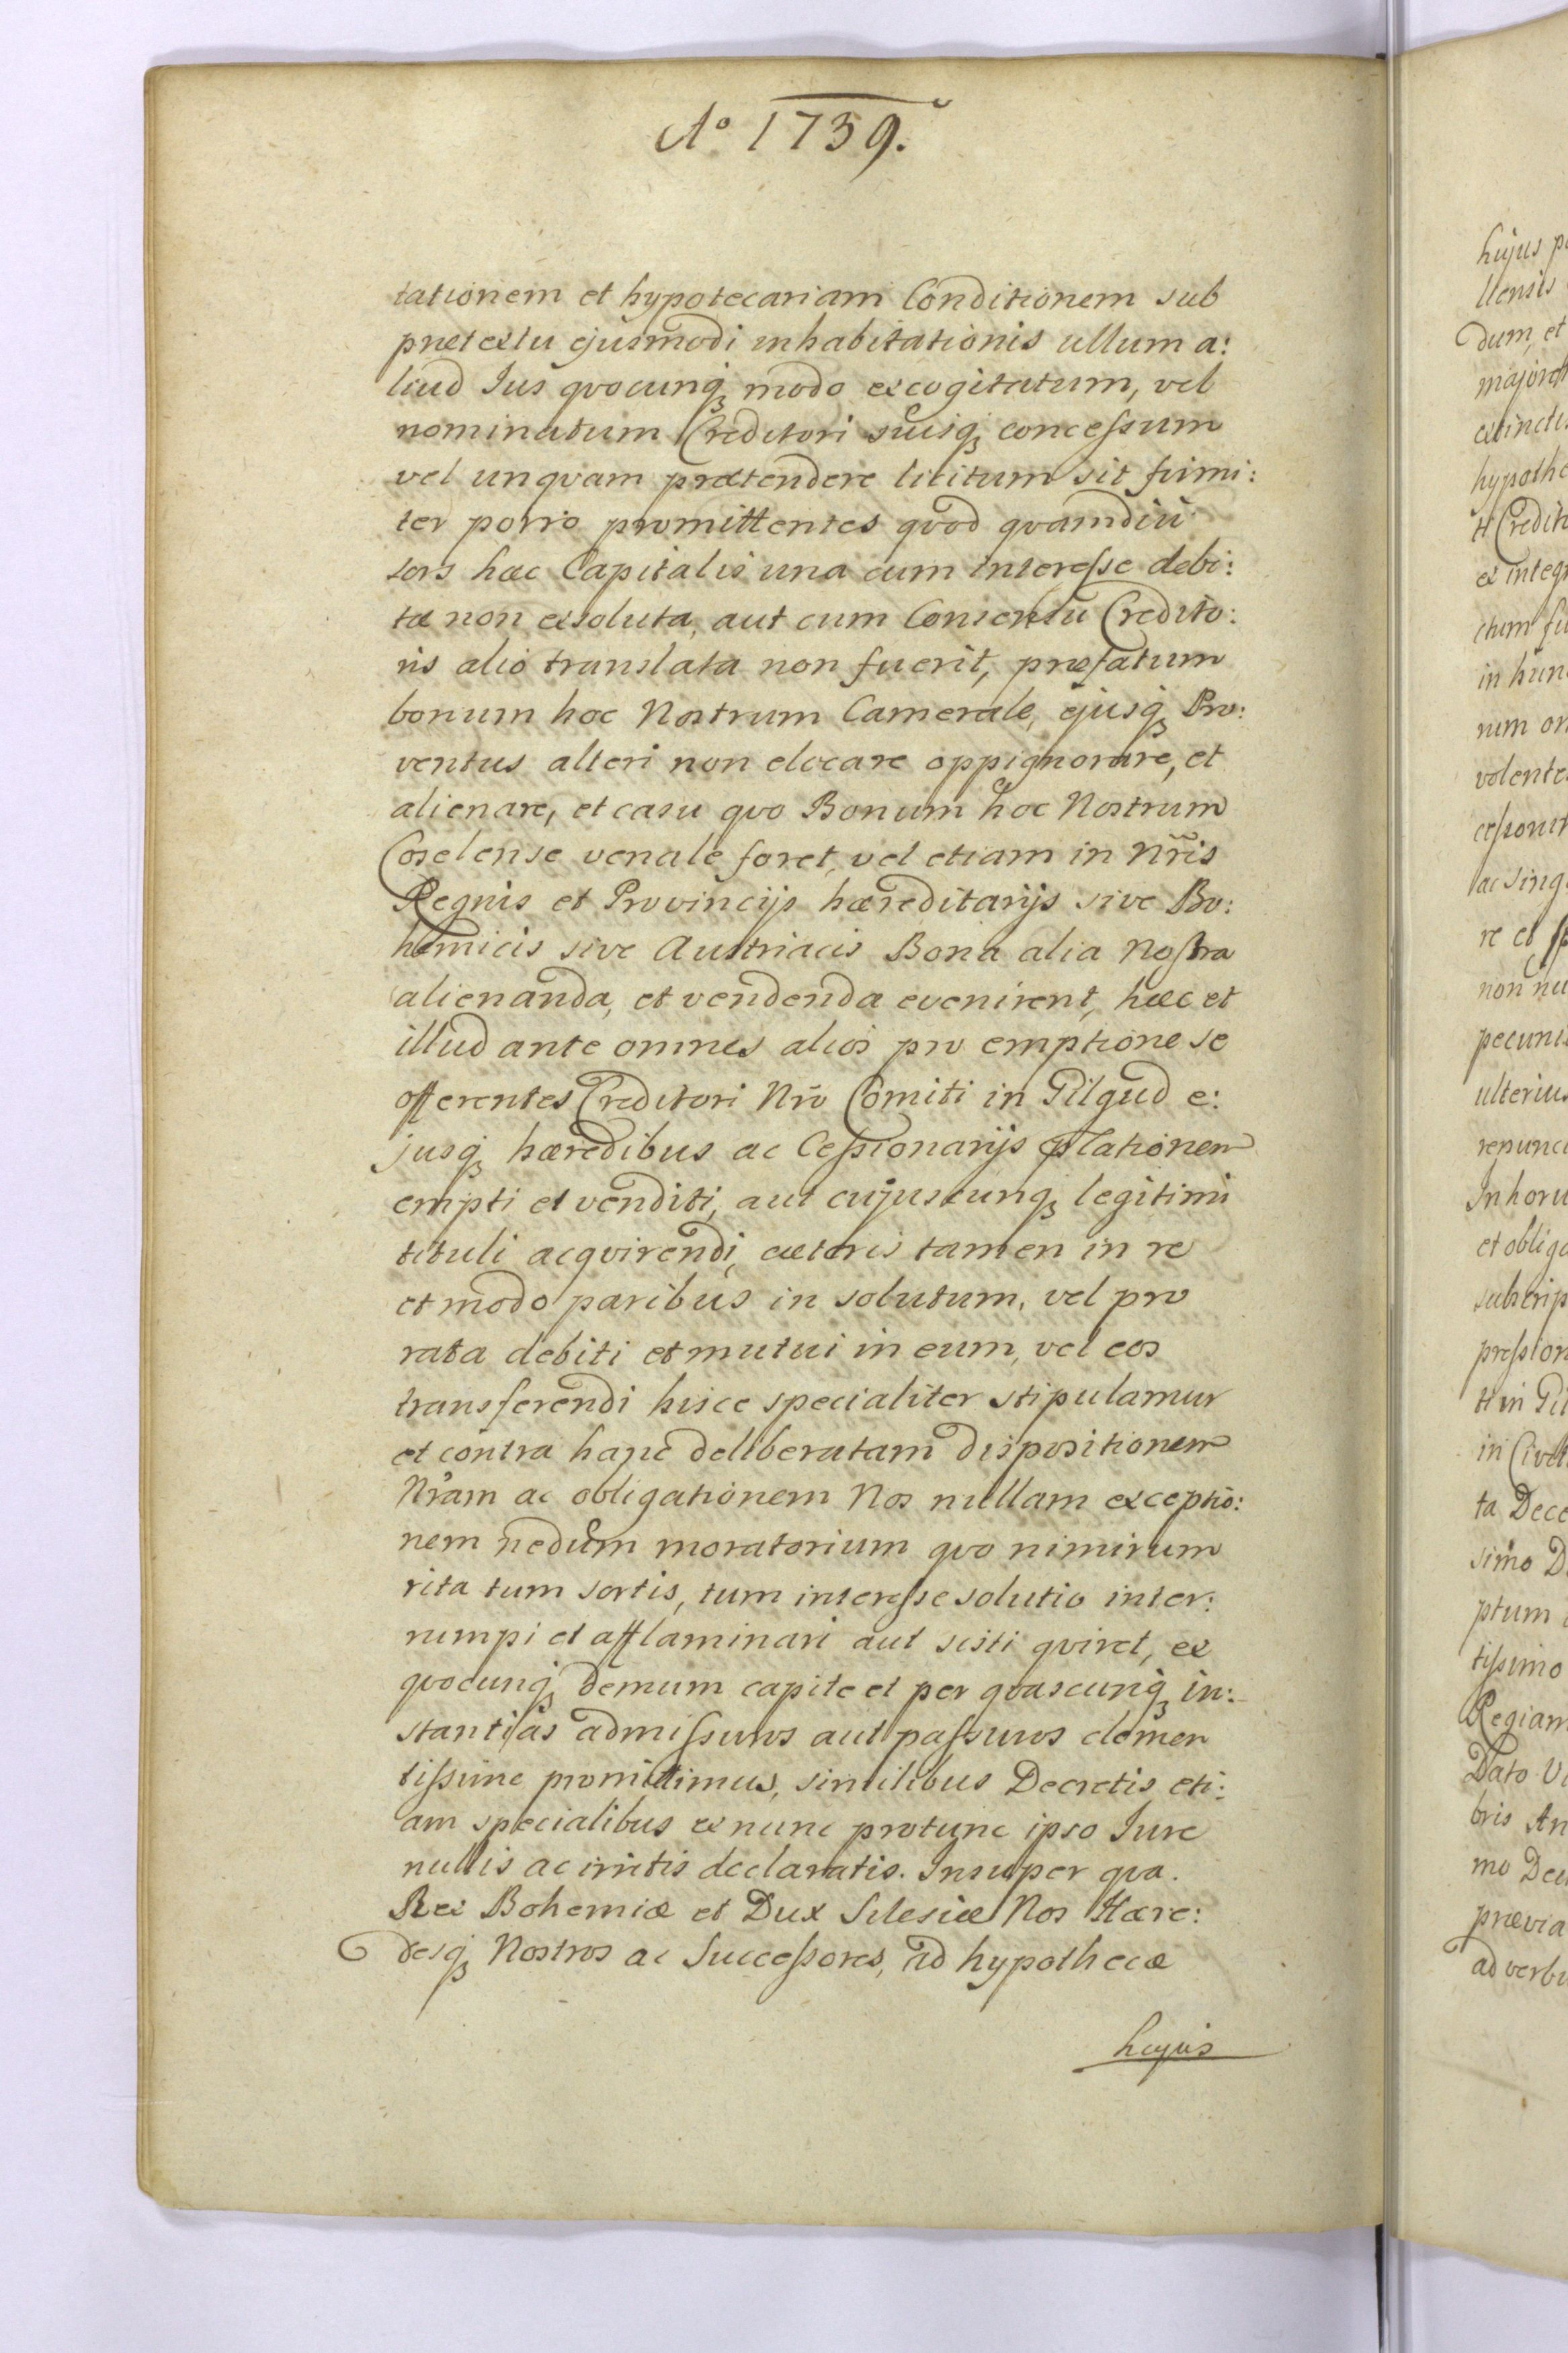 Aº 1739.
tationem et hypotecariam Conditionem sub
prætextu ejusmodi inhabitationis ullum a:
liud Jus qvocunq; modo excogitatum, vel
nominatum Creditori suisq; concessum
vel unqvam prætendere licitum sit firmi:
ter porro promittentes qvod qvamdiu
sors hæc Capitalis una cum interesse debi:
tæ non exsoluta, aut cum Consensu Credito:
ris alio translata non fuerit, præfatum
bonum hoc Nostrum Camerale, ejusq; Pro:
ventus alteri non elocare oppignorare, et
alienare, et casu qvo Bonum hoc Nostrum
Coselense venale foret, vel etiam in Nr̃is
Regnis et Provincijs hæreditarijs sive Bo:
hemicis sive Austriacis Bona alia Nostra
alienanda, et vendenda evenirent, hæc et
illud ante omnes alios pro emptione se
offerentes Creditori Nr̃o Comiti in Gilgud e:
jusq; hæredibus ac Cessionarijs plationem
empti et venditi, aut cujuscunq; legitimi
tituli acqvirendi, cæteris tamen in re
et modo paribus in solutum, vel pro
rata debiti et mutui in eum, vel eos
transferendi hisce specialiter stipulamur
et contra hanc deliberatam dispositionem
Nr̃am ac obligationem Nos nullam exceptio:
nem nedum moratorium qvo nimirum
rita tum sortis, tum interesse solutio inter:
rumpi et afflaminari aut sisti qviret, ex
qvocunq; demum capite et per qvascunq; in:
stantias admissuros aut passuros clemen
tissime promittimus, similibus Decretis, eti:
am specialibus ex nunc protunc ipso Jure
nullis ac irritis declaratis. Insuper qva.
Rex Bohemiæ et Dux Silesiæ Nos Hære:
desq; Nostros ac Successores, ad hypothecæ
hujus
hujus
llensis
dum, et
hypothe
in hun
volente
ac sing
re et
non nu
pecuni
ulterius
renunci
In horu
et oblig
subscrip
in Civit
ta Dece
simo D
ptum
tissimo
Regiam
Dato Vi
bris An
mo Dec
prævia
ad verbu